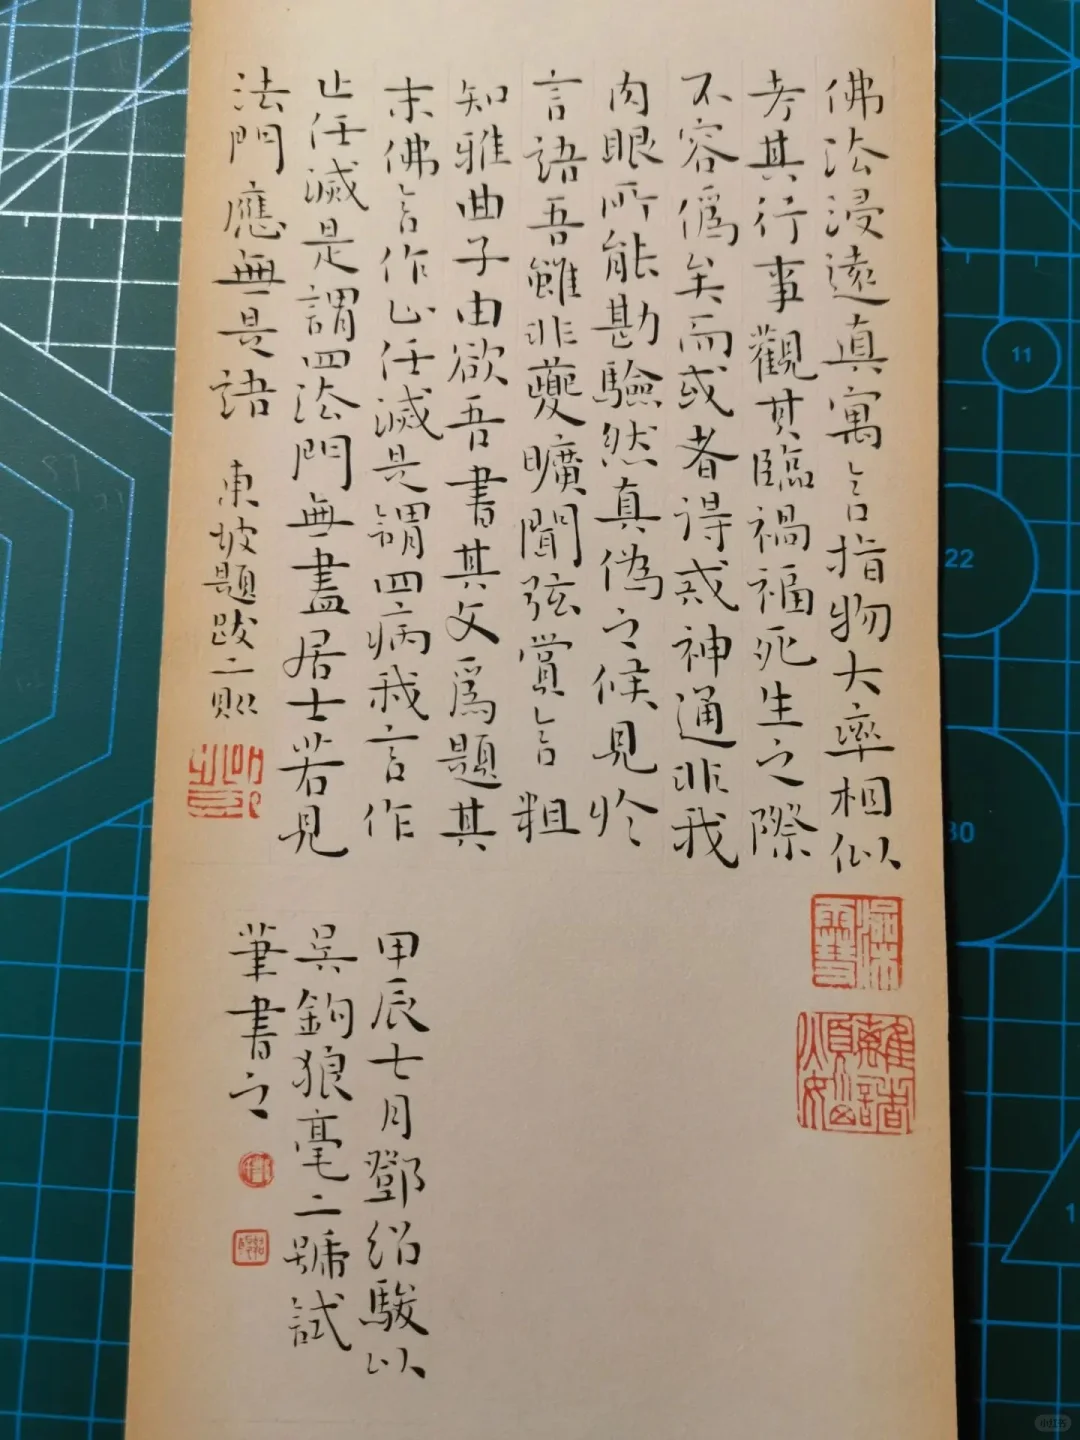 佛法浸遠真寓言指物大率相似
考其行事觀其臨禍福死生之際
不容僞矣而或者得戒神通非我
肉眼所能勘驗然真偽之候見於
言語吾雖非夔曠聞弦賞言粗
知雅曲子由欲吾書其文爲題其
末佛言作止任滅是謂四病我言作
止任滅是謂四法門無盡居士若見
法門應無是語
東坡題跋二則
甲辰七月鄧紹駿以
吴鉤狼毫二號試
筆書之
離諸
煩惱
11
22
30